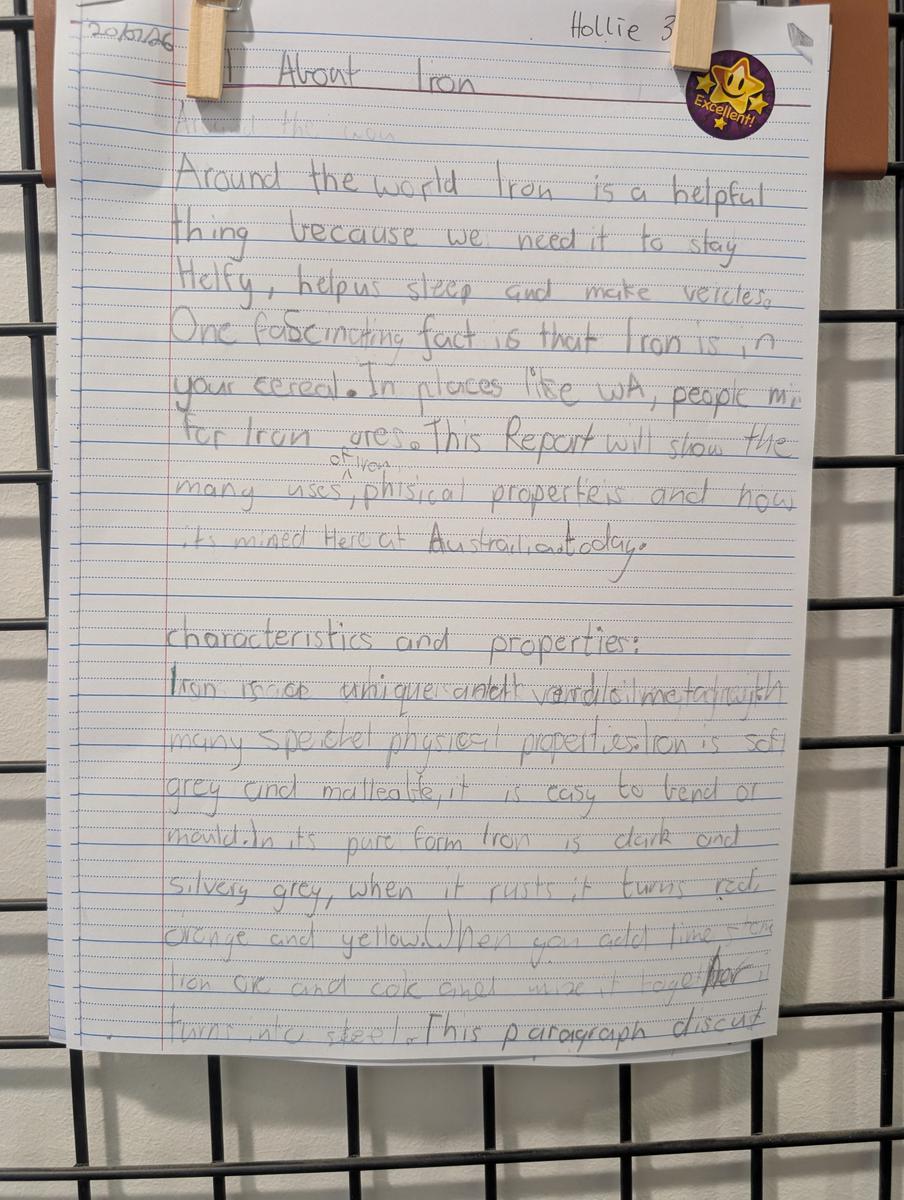 20/02/26
Hollie 3
About Iron
Excellent!
Around the
Around the world Iron is a helpful
thing because we need it to stay
Helfy, help us sleep and make veicles.
One fascinating fact is that Iron is in
your cereal. In places like WA, people mi
for Iron ores. This Report will show the
of Iron
many uses, phisical properteis and how
its mined Here at Austrailia today.
characteristics and properties:
Iron is a unique metal with
many speichel physical properties. Iron is soft
grey and malleable, it is easy to bend or
mould. In its pure form Iron is dark and
silvery grey, when it rusts it turns red,
orange and yellow. When you add lime ston
Iron ore and cok and mixe it together i
turns into steel. This paragraph discut